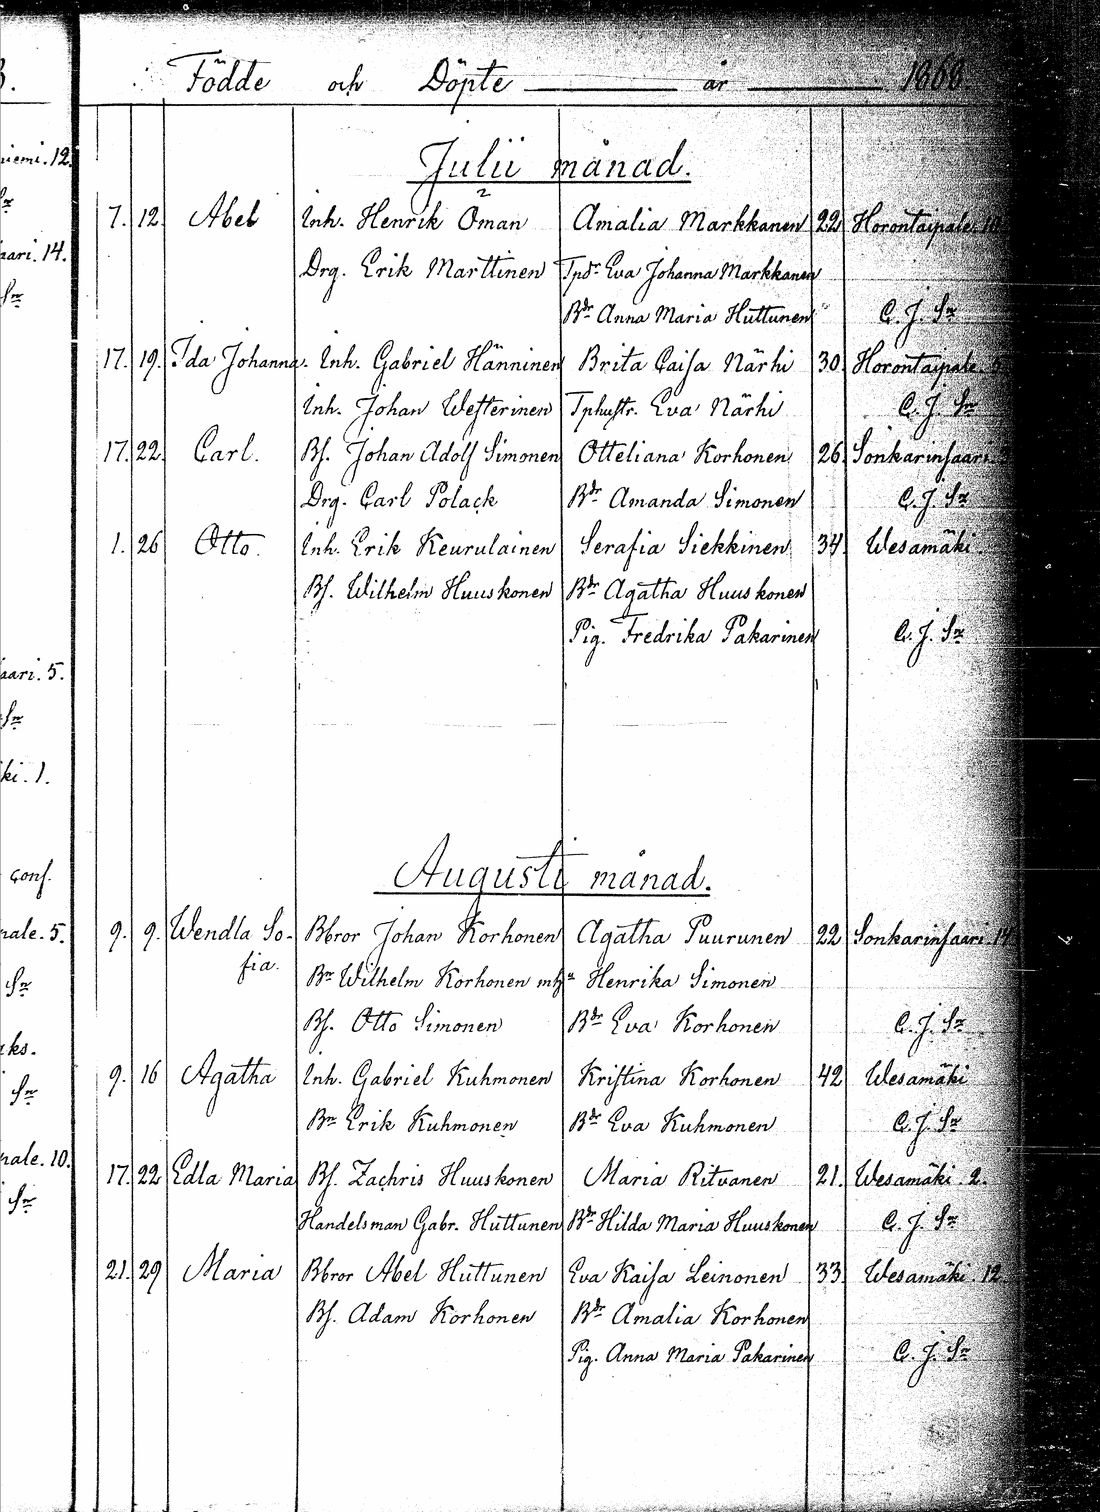 Födde och Döpte år 1868.
Julii månad.
7. 12. Abel Inh. Henrik Öman Amalia Markkanen 22 Horontaipale.
Drg. Erik Marttinen Tpdr Eva Johanna Markkanen
Bdr Anna Maria Huttunen C. J. Sr
17. 19. Ida Johanna. Inh. Gabriel Hänninen Brita Caisa Närhi 30 Horontaipale.
Inh. Johan Westerinen Tphustr. Eva Närhi C. J. Sr
17. 22. Carl. Bs. Johan Adolf Simonen Otteliana Korhonen 26 Sonkarinsaari
Drg. Carl Polack Bdr Amanda Simonen C. J. Sr
1. 26 Otto. Inh. Erik Keurulainen Serafia Siekkinen 34 Wesamäki.
Bs. Wilhelm Huuskonen Bdr Agatha Huuskonen
Pig. Fredrika Pakarinen C. J. Sr
Augusti månad.
9. 9. Wendla So- Bbror Johan Korhonen Agatha Puurunen 22 Sonkarinsaari. 14
fia. Bn Wilhelm Korhonen Henrika Simonen
Bs. Otto Simonen Bdr Eva Korhonen C. J. Sr
9. 16 Agatha Inh. Gabriel Kuhmonen Kristina Korhonen 42 Wesamäki
Bn Erik Kuhmonen Bdr Eva Kuhmonen C. J. Sr
17. 22 Edla Maria Bs. Zachris Huuskonen Maria Ritvanen 21. Wesamäki. 2.
Handelsman Gabr. Huttunen Bdr Hilda Maria Huuskonen C. J. Sr
21. 29 Maria Bbror Abel Huttunen Eva Kaisa Leinonen 33. Wesamäki. 12
Bs. Adam Korhonen Bdr Amalia Korhonen
Pig. Anna Maria Pakarinen C. J. Sr